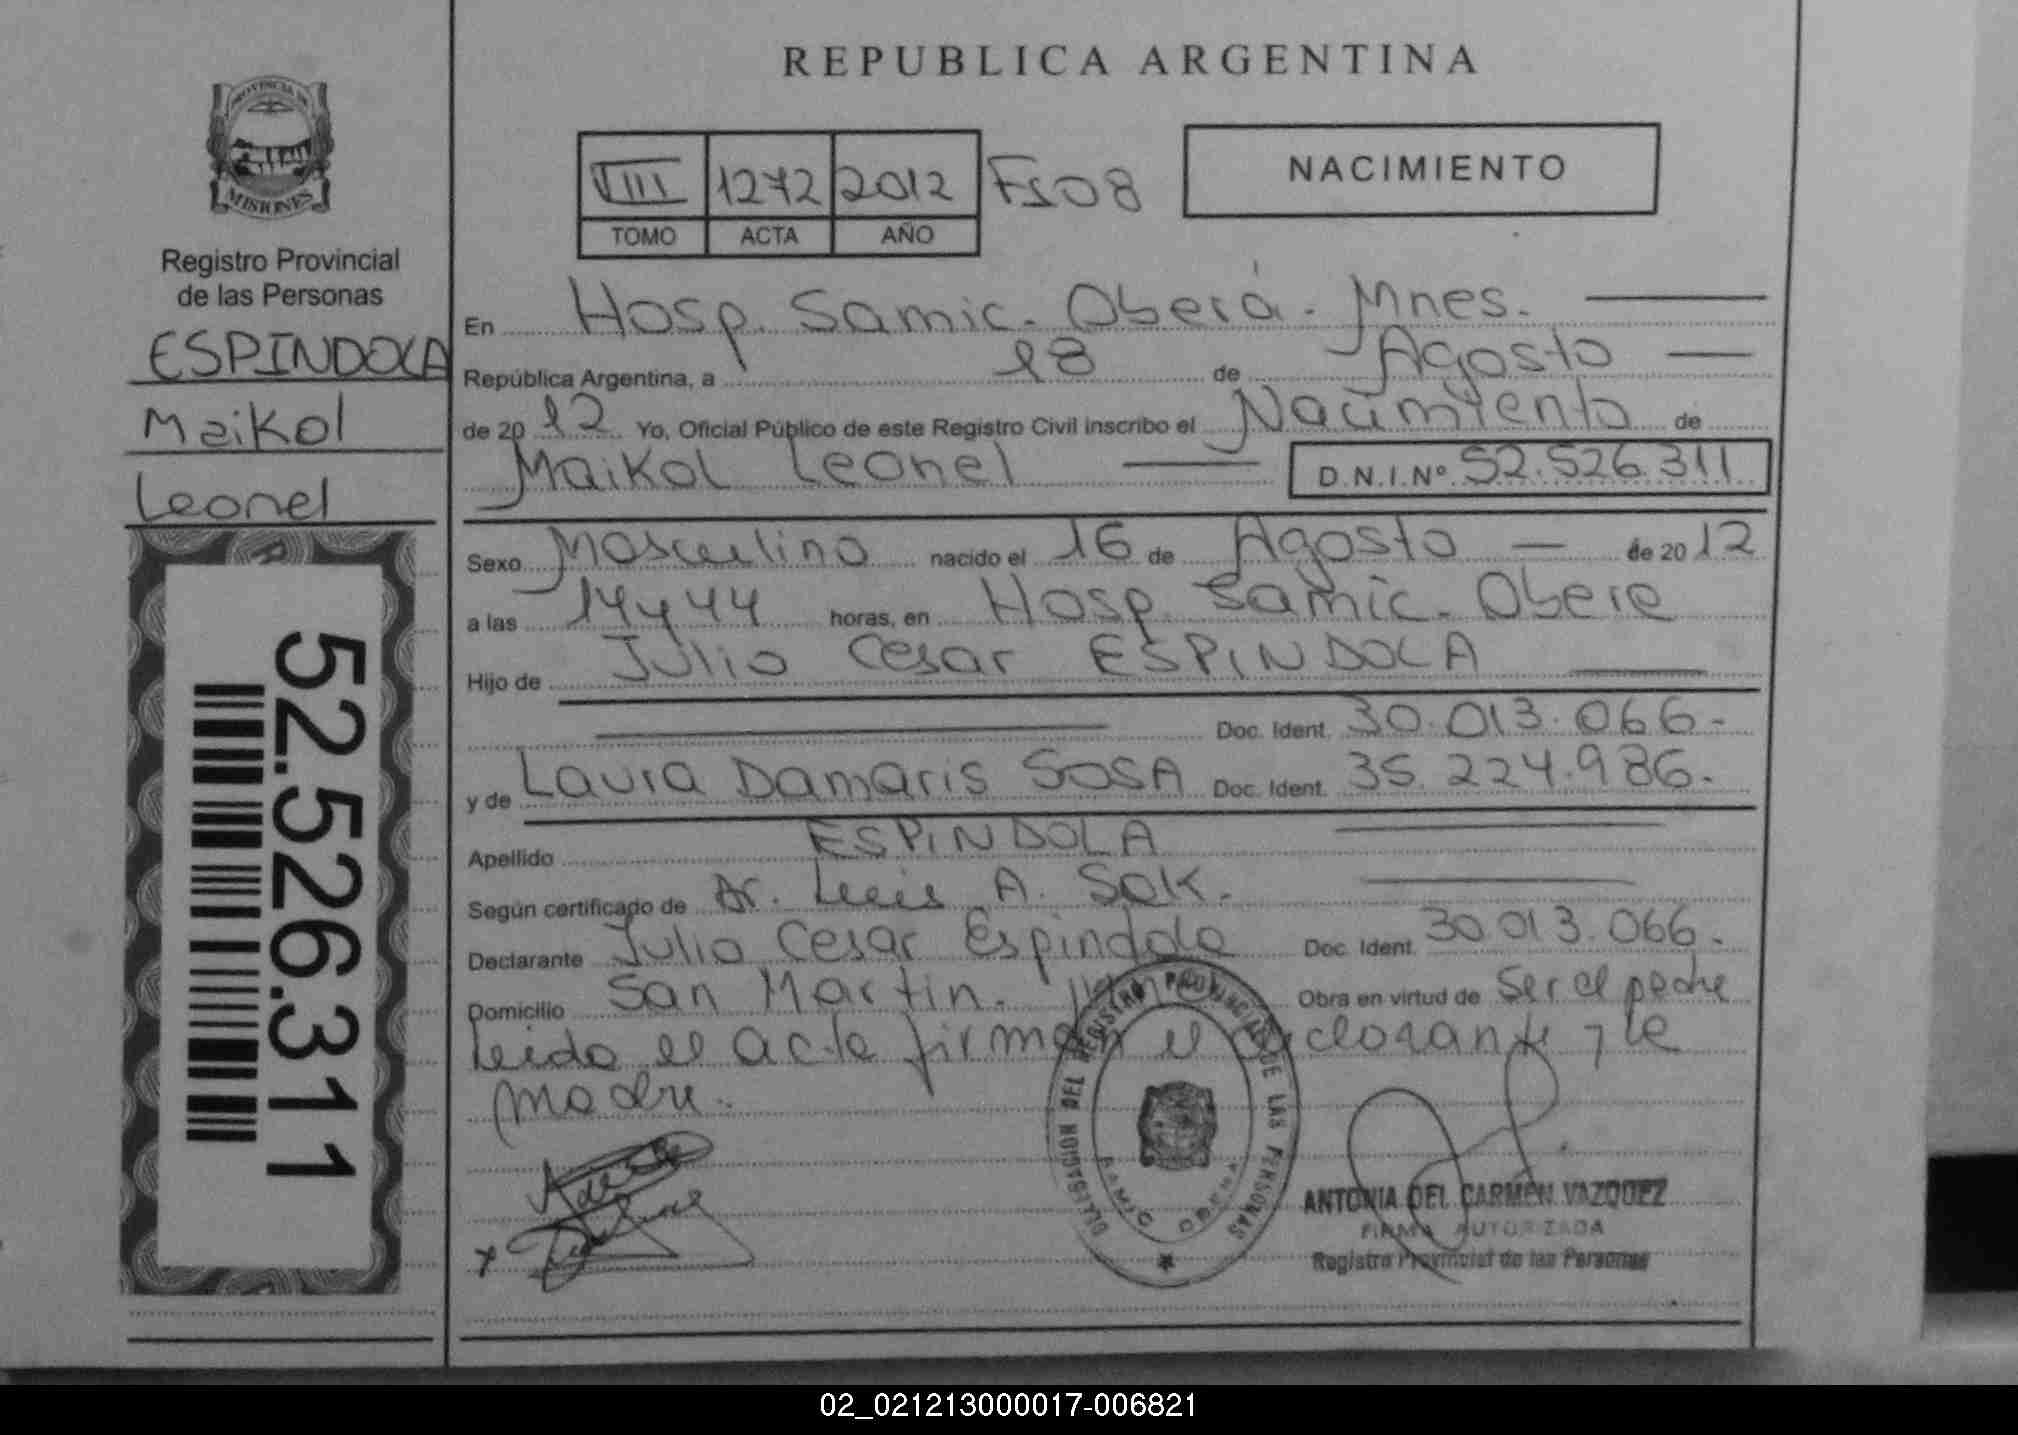 REPUBLICA ARGENTINA
PROVINCIA DE
MISIONES
Registro Provincial
de las Personas
ESPINDOLA
Maikol
Leonel
52.526.311
VIII 1272 2012 Fs08
TOMO ACTA AÑO
NACIMIENTO
En Hosp. Samic. Oberá. Mnes.
República Argentina, a 18 de Agosto
de 2012 Yo, Oficial Público de este Registro Civil inscribo el Nacimiento de
Maikol Leonel D.N.I.Nº 52.526.311
Sexo Masculino nacido el 16 de Agosto de 2012
a las 14 y 44 horas, en Hosp. Samic. Obera
Hijo de Julio Cesar ESPINDOLA
Doc. Ident. 30.013.066.-
y de Laura Damaris SOSA Doc. Ident. 35.224.986.
Apellido ESPINDOLA
Según certificado de Dr. Luis A. Sak.
Declarante Julio Cesar Espindola Doc. Ident. 30.013.066.
Domicilio San Martin. Obra en virtud de Ser el padre
Leida el acta firman el declarante y la
madre.
DELEGACION DEL REGISTRO PROVINCIAL DE LAS PERSONAS
SAMIC OBERA
x
ANTONIA DEL CARMEN VAZQUEZ
FIRMA AUTORIZADA
Registro Provincial de las Personas
02_021213000017-006821